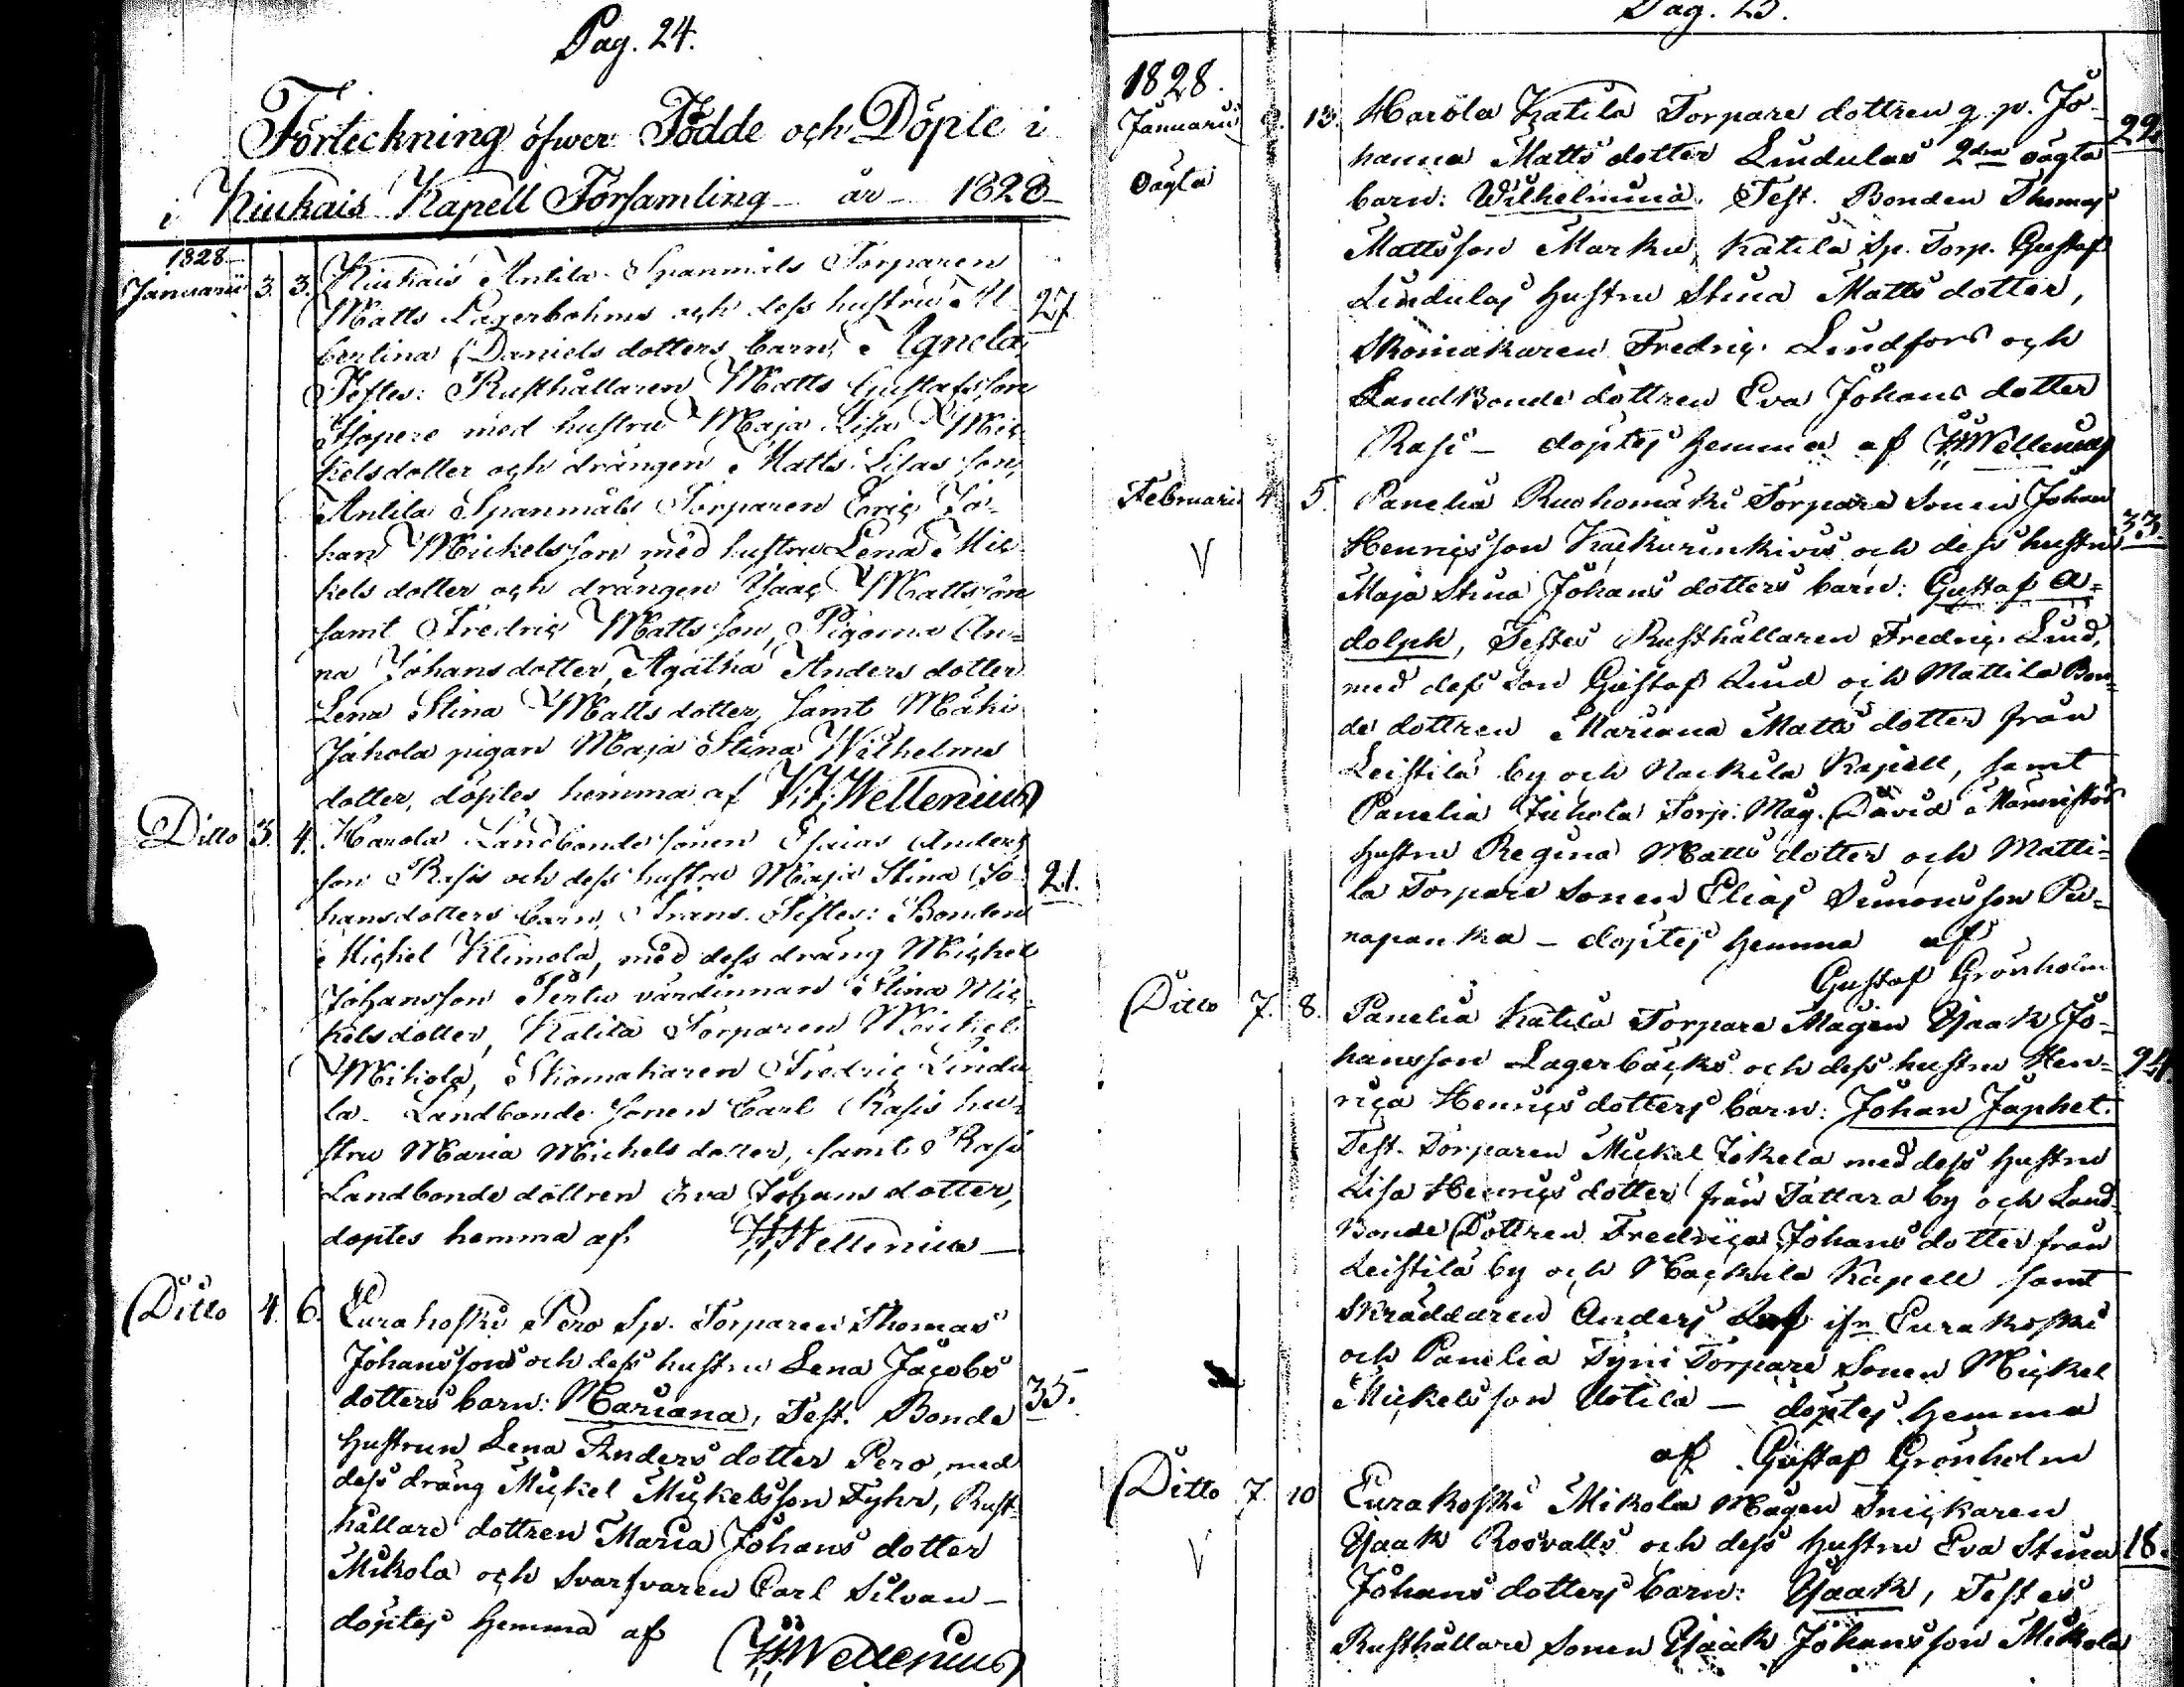 Pag. 24.
Förteckning öfwer Födde och Döpte i
i Kiukais Kapell Församling år 1828
1828
Januarii 3. 3. Kiukais Antila Spanmåls Torparen
Matts Lagerbohms och dess hustru Al
bertina Daniels dotters barn, Agneta 27
Testes: Rusthållaren Matts Gustafsson
Isopere med hustru Maja Lisa Mic
kelsdotter och drängen Matts Lisas son,
Antila Spanmåls Torparen Eric Jo-
han Mickelsson med hustru Lena Mic
kels dotter och drängen Isaac Mattsson
samt Fredric Matts son, Pigorna An=
na Johansdotter, Agatha Anders dotter
Lena Stina Matts dotter, samt Mäki
Jakola pigan Maja Stina Wilhelms
dotter, döptes hemma af Wellenius
Ditto 3. 4. Harola Landbonde sonen Esaias Anders
son Rasis och dess hustru Maja Stina Jo- 21.
hansdotters barn, Frans. Testes: Bonden
Michel Klimola, med dess dräng Michel
Johansson Perttu värdinnan Stina Mic
kelsdotter, Katila Torparen Mickel
Mikola, Skomakaren Fredric Lindu
la. Landbonde sonen Carl Rasis hu-
stru Maria Michels dotter, samt Rasi
Landbonde dottren Eva Johans dotter,
döptes hemma af Wellenius
Ditto 4. 6. Eurakoski Pero Sp. Torparen Thomas
Johanssons och dess hustru Lena Jacobs
dotters barn: Mariana, Test. Bonde 35.
hustrun Lena Anders dotter Pero, med
dess dräng Mickel Mickelsson Fyhr, Rust=
hållare dottren Maria Johans dotter
Mikola och Svarfvaren Carl Silvan
döptes hemma af
Wellenius
Pag. 25.
1828.
Januarii 13. Harola Katila Torpare dottren g. p. Jo- 22
hanna Matts dotter Lindulas 2dra oägta
oägta barn: Wilhelmina. Test. Bonden Thomas
Mattsson Marku, Katila Sp. Torp. Gustaf
Lindulas hustru Stina Matts dotter,
Skomakaren Fredric Lindfors och
Landbonde dottren Eva Johans dotter
Rasi - döptes hemma af Wellenius
Februarii 4. 5. Panelia Ruohomäki Torpare Sonen Johan 33.
V Henricsson och dess hustru
Maja Stina Johans dotters barn: Gustaf A=
dolph, Testes Rusthållaren Fredric Lind,
med dess son Gustaf Lind och Mattila Bon=
de dottren Mariana Matts dotter från
Leistilä by och Nackila Kapell, samt
Panelia Torp. Måg. David Männistös
hustru Regina Matts dotter och Matti=
la Torpare Sonen Elias Simonsson Pu=
napaukka - döptes hemma af
Gustaf Grönholm
Ditto 7. 8. Panelia Katila Torpare Mågen Isaak Jo=
hansson Lagerbäcks och dess hustru Hen= 24.
rica Henrics dotters barn: Johan Japhet.
Test. Torparen Mickel Jokela med dess hustru
Lisa Henrics dotter från Tattara by och Land=
Bonde Dottren Fredrica Johans dotter från
Leistilä by och Nackila Kapell samt
Skräddaren Anders Löf ifn Eurakoski
och Panelia Tyni Torpare Sonen Mickel
Mickelsson Uotila - döptes hemma
af Gustaf Grönholm
Ditto 7. 10 Eurakoski Mikola Mågen Snickaren
V Isaak Roosvalls och dess hustru Eva Stina 18.
Johans dotters barn: Isaak, Testes
Rusthållare Sonen Isaak Johansson Mikola